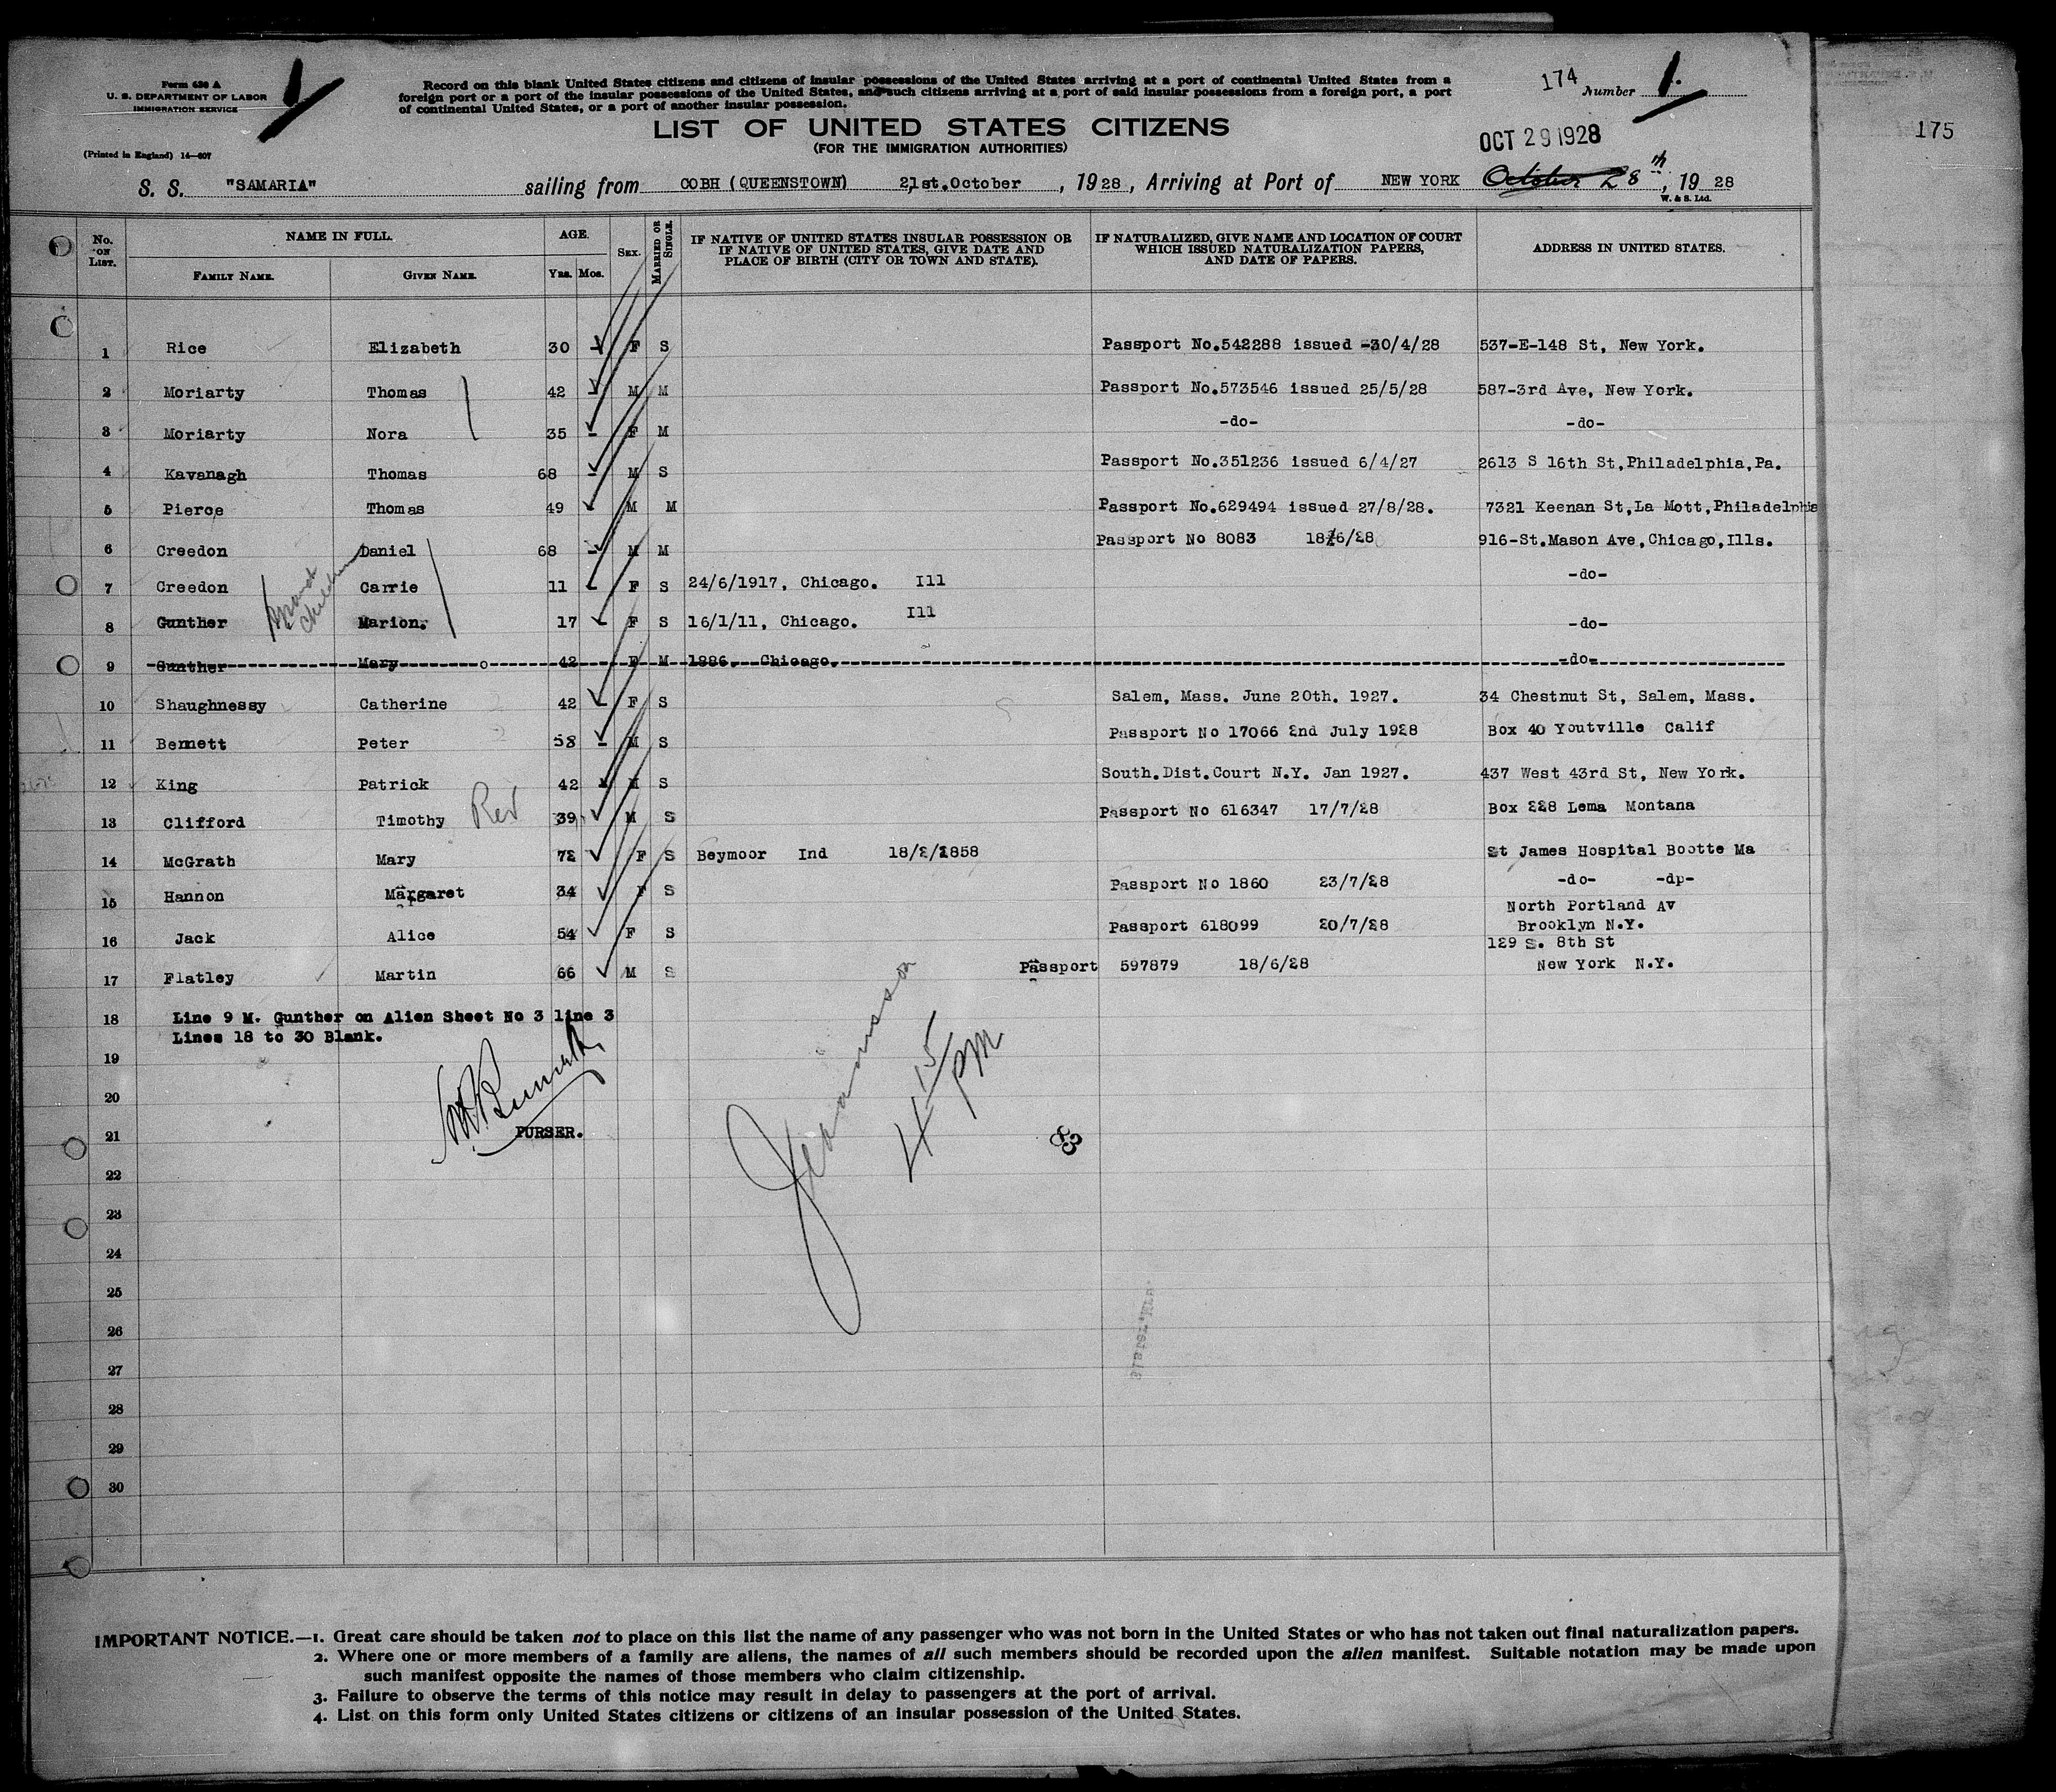 Form 630 A
U. S. DEPARTMENT OF LABOR
IMMIGRATION SERVICE
(Printed in England) 14—607
Record on this blank United States citizens and citizens of insular possessions of the United States arriving at a port of continental United States from a
foreign port or a port of the insular possessions of the United States, and such citizens arriving at a port of said insular possessions from a foreign port, a port
of continental United States, or a port of another insular possession.
174 Number 1.
LIST OF UNITED STATES CITIZENS
(FOR THE IMMIGRATION AUTHORITIES)
OCT 29 1928
175
S. S. "SAMARIA" sailing from COBH (QUEENSTOWN) 21st.October , 1928, Arriving at Port of NEW YORK October 28th, 1928
W. & S. Ltd.
No. ON LIST. NAME IN FULL. FAMILY NAME. GIVEN NAME. AGE. YRS. MOS. SEX. MARRIED OR SINGLE.
IF NATIVE OF UNITED STATES INSULAR POSSESSION OR
IF NATIVE OF UNITED STATES, GIVE DATE AND
PLACE OF BIRTH (CITY OR TOWN AND STATE).
IF NATURALIZED, GIVE NAME AND LOCATION OF COURT
WHICH ISSUED NATURALIZATION PAPERS,
AND DATE OF PAPERS.
ADDRESS IN UNITED STATES.
1 Rice Elizabeth 30 - F S Passport No.542288 issued -30/4/28 537-E-148 St, New York.
2 Moriarty Thomas 42 - M M Passport No.573546 issued 25/5/28 587-3rd Ave, New York.
3 Moriarty Nora 35 - F M -do- -do-
4 Kavanagh Thomas 68 - M S Passport No.351236 issued 6/4/27 2613 S 16th St,Philadelphia,Pa.
5 Pierce Thomas 49 M M Passport No.629494 issued 27/8/28. 7321 Keenan St,La Mott,Philadelphia
6 Creedon Daniel 68 - M M Passport No 8083 18/6/28 916-St.Mason Ave,Chicago,Ills.
Grand children
7 Creedon Carrie 11 - F S 24/6/1917, Chicago. Ill -do-
8 Gunther Marion. 17 - F S 16/1/11, Chicago. Ill -do-
9 Gunther Mary 42 F M 1886, Chicago. -do-
10 Shaughnessy Catherine 42 - F S Salem, Mass. June 20th. 1927. 34 Chestnut St, Salem, Mass.
11 Bennett Peter 58 - M S Passport No 17066 2nd July 1928 Box 40 Youtville Calif
12 King Patrick 42 M S South.Dist.Court N.Y. Jan 1927. 437 West 43rd St, New York.
13 Clifford Timothy Rev 39 M S Passport No 616347 17/7/28 Box 228 Lema Montana
14 McGrath Mary 72 F S Beymoor Ind 18/2/1858 St James Hospital Bootte Ma
15 Hannon Margaret 34 F S Passport No 1860 23/7/28 -do- -dp-
16 Jack Alice 54 F S Passport 618099 20/7/28 North Portland Av
Brooklyn N.Y.
129 S. 8th St
17 Flatley Martin 66 M S Passport 597879 18/6/28 New York N.Y.
18 Line 9 M. Gunther on Alien Sheet No 3 line 3
Lines 18 to 30 Blank.
19
20
21 PURSER.
4 15 pm
83
22
23
24
25
26
27
28
29
30
IMPORTANT NOTICE.—1. Great care should be taken not to place on this list the name of any passenger who was not born in the United States or who has not taken out final naturalization papers.
2. Where one or more members of a family are aliens, the names of all such members should be recorded upon the alien manifest. Suitable notation may be made upon
such manifest opposite the names of those members who claim citizenship.
3. Failure to observe the terms of this notice may result in delay to passengers at the port of arrival.
4. List on this form only United States citizens or citizens of an insular possession of the United States.